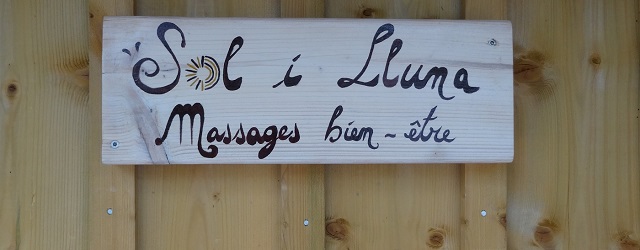 Sol i Lluna
Massages bien-être